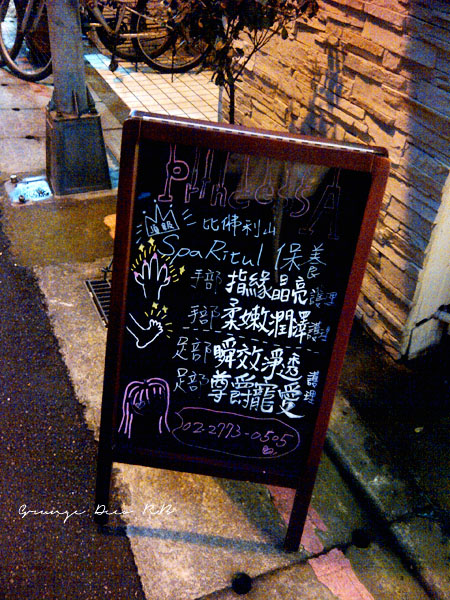 Princess A
頂級
比佛利山
SpaRitul 保養
手部 指緣晶亮 護理
手部 柔嫩潤澤 護理
足部 瞬效淨透 護理
足部 尊爵寵愛
02-2773-0505